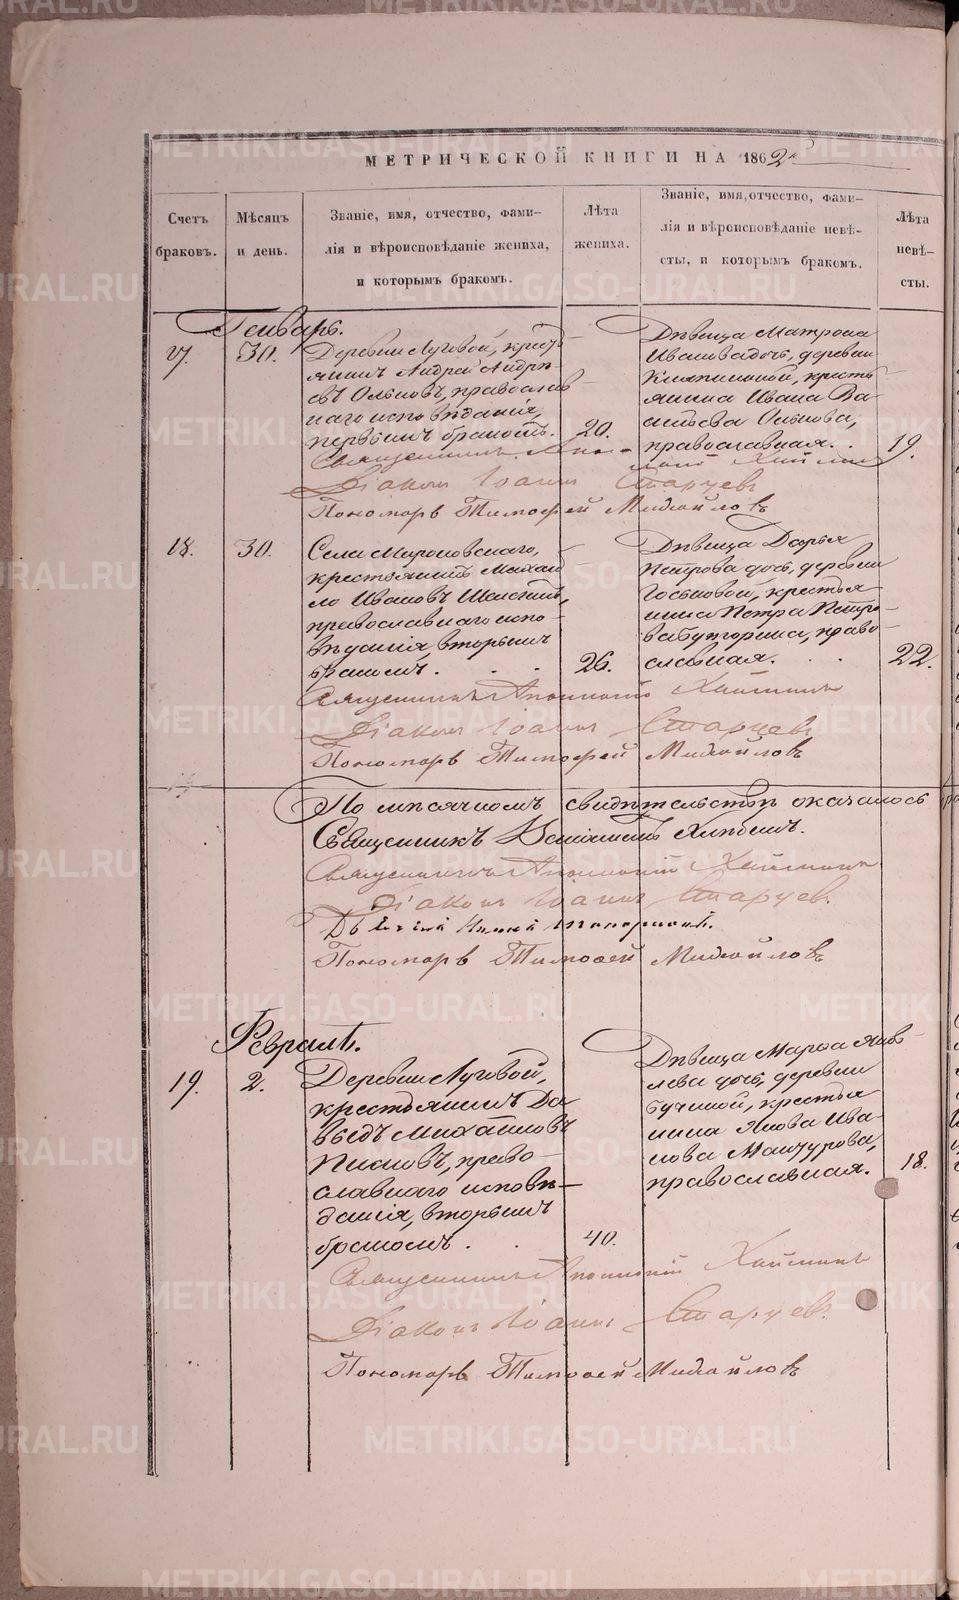 МЕТРИЧЕСКОЙ КНИГИ НА 1862 г.
Счетъ браковъ.
Мѣсяцъ и день.
Званіе, имя, отчество, фами-
лія и вѣроисповѣданіе жениха,
и которымъ бракомъ.
Лѣта
жениха.
Званіе, имя, отчество, фами-
лія и вѣроисповѣданіе невѣ-
сты, и которымъ бракомъ.
Лѣта
невѣ-
сты.
Генварь.
17.
30.
Деревни Луговой, кресть
янинъ Андрей Андре
евъ Ольковъ, православ
наго исповѣданія,
первымъ бракомъ.
20.
Дѣвица Матрона
Иванова дочь, деревни
крестья
янина Ивана Ва
сильева Олькова,
православная.
19.
Священникъ
Діаконъ Іоаннъ Старцевъ
Пономарь Тимофей Михайловъ
18.
30.
Села Мироновскаго,
крестьянинъ Михаи
ло Ивановъ
православнаго испо-
вѣданія, вторымъ
бракомъ.
26.
Дѣвица Дарья
Петрова дочь, деревни
крестья
нина Петра Петро-
ва право-
славная.
22.
Священникъ Аполлоній Хаймин
Діаконъ Іоаннъ Старцевъ
Пономарь Тимофей Михайловъ
По мѣсячномъ свидѣтельствѣ оказалось
Священникъ Веніаминъ
Священникъ Аполлоній Хаймин
Діаконъ Іоаннъ Старцевъ.
Пономарь Тимофей Михайловъ
Февраль.
19.
2.
Деревни Луговой,
крестьянинъ Да
выдъ Михайловъ
право-
славнаго исповѣ-
данія, вторымъ
бракомъ.
40.
Дѣвица Марѳа Яков
лева дочь, деревни
крестья
нина Якова Ива-
нова Манчурова,
православная.
18.
Священникъ Аполлоній Хаймин
Діаконъ Іоаннъ Старцевъ.
Пономарь Тимофей Михайловъ
METRIKI.GASO-URAL.RU